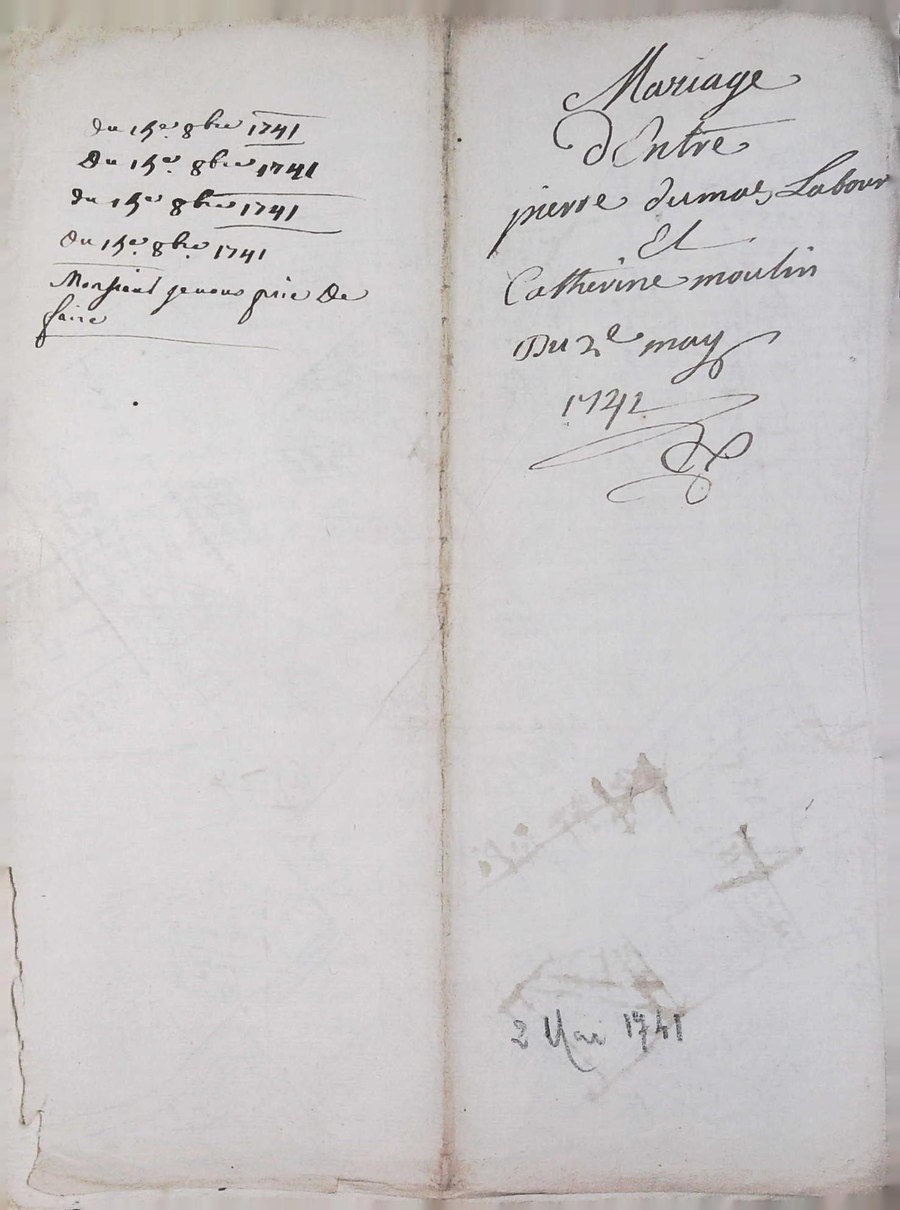 du 15e. 8bre 1741
Du 15e. 8bre 1741
du 15e 8bre 1741
du 15e. 8bre. 1741
Monsieur je vous prie De
faire
Mariage
d'Entre
pierre dumas Labour
Et
Catherine moulin
Du 2e may
1741
2 Mai 1741